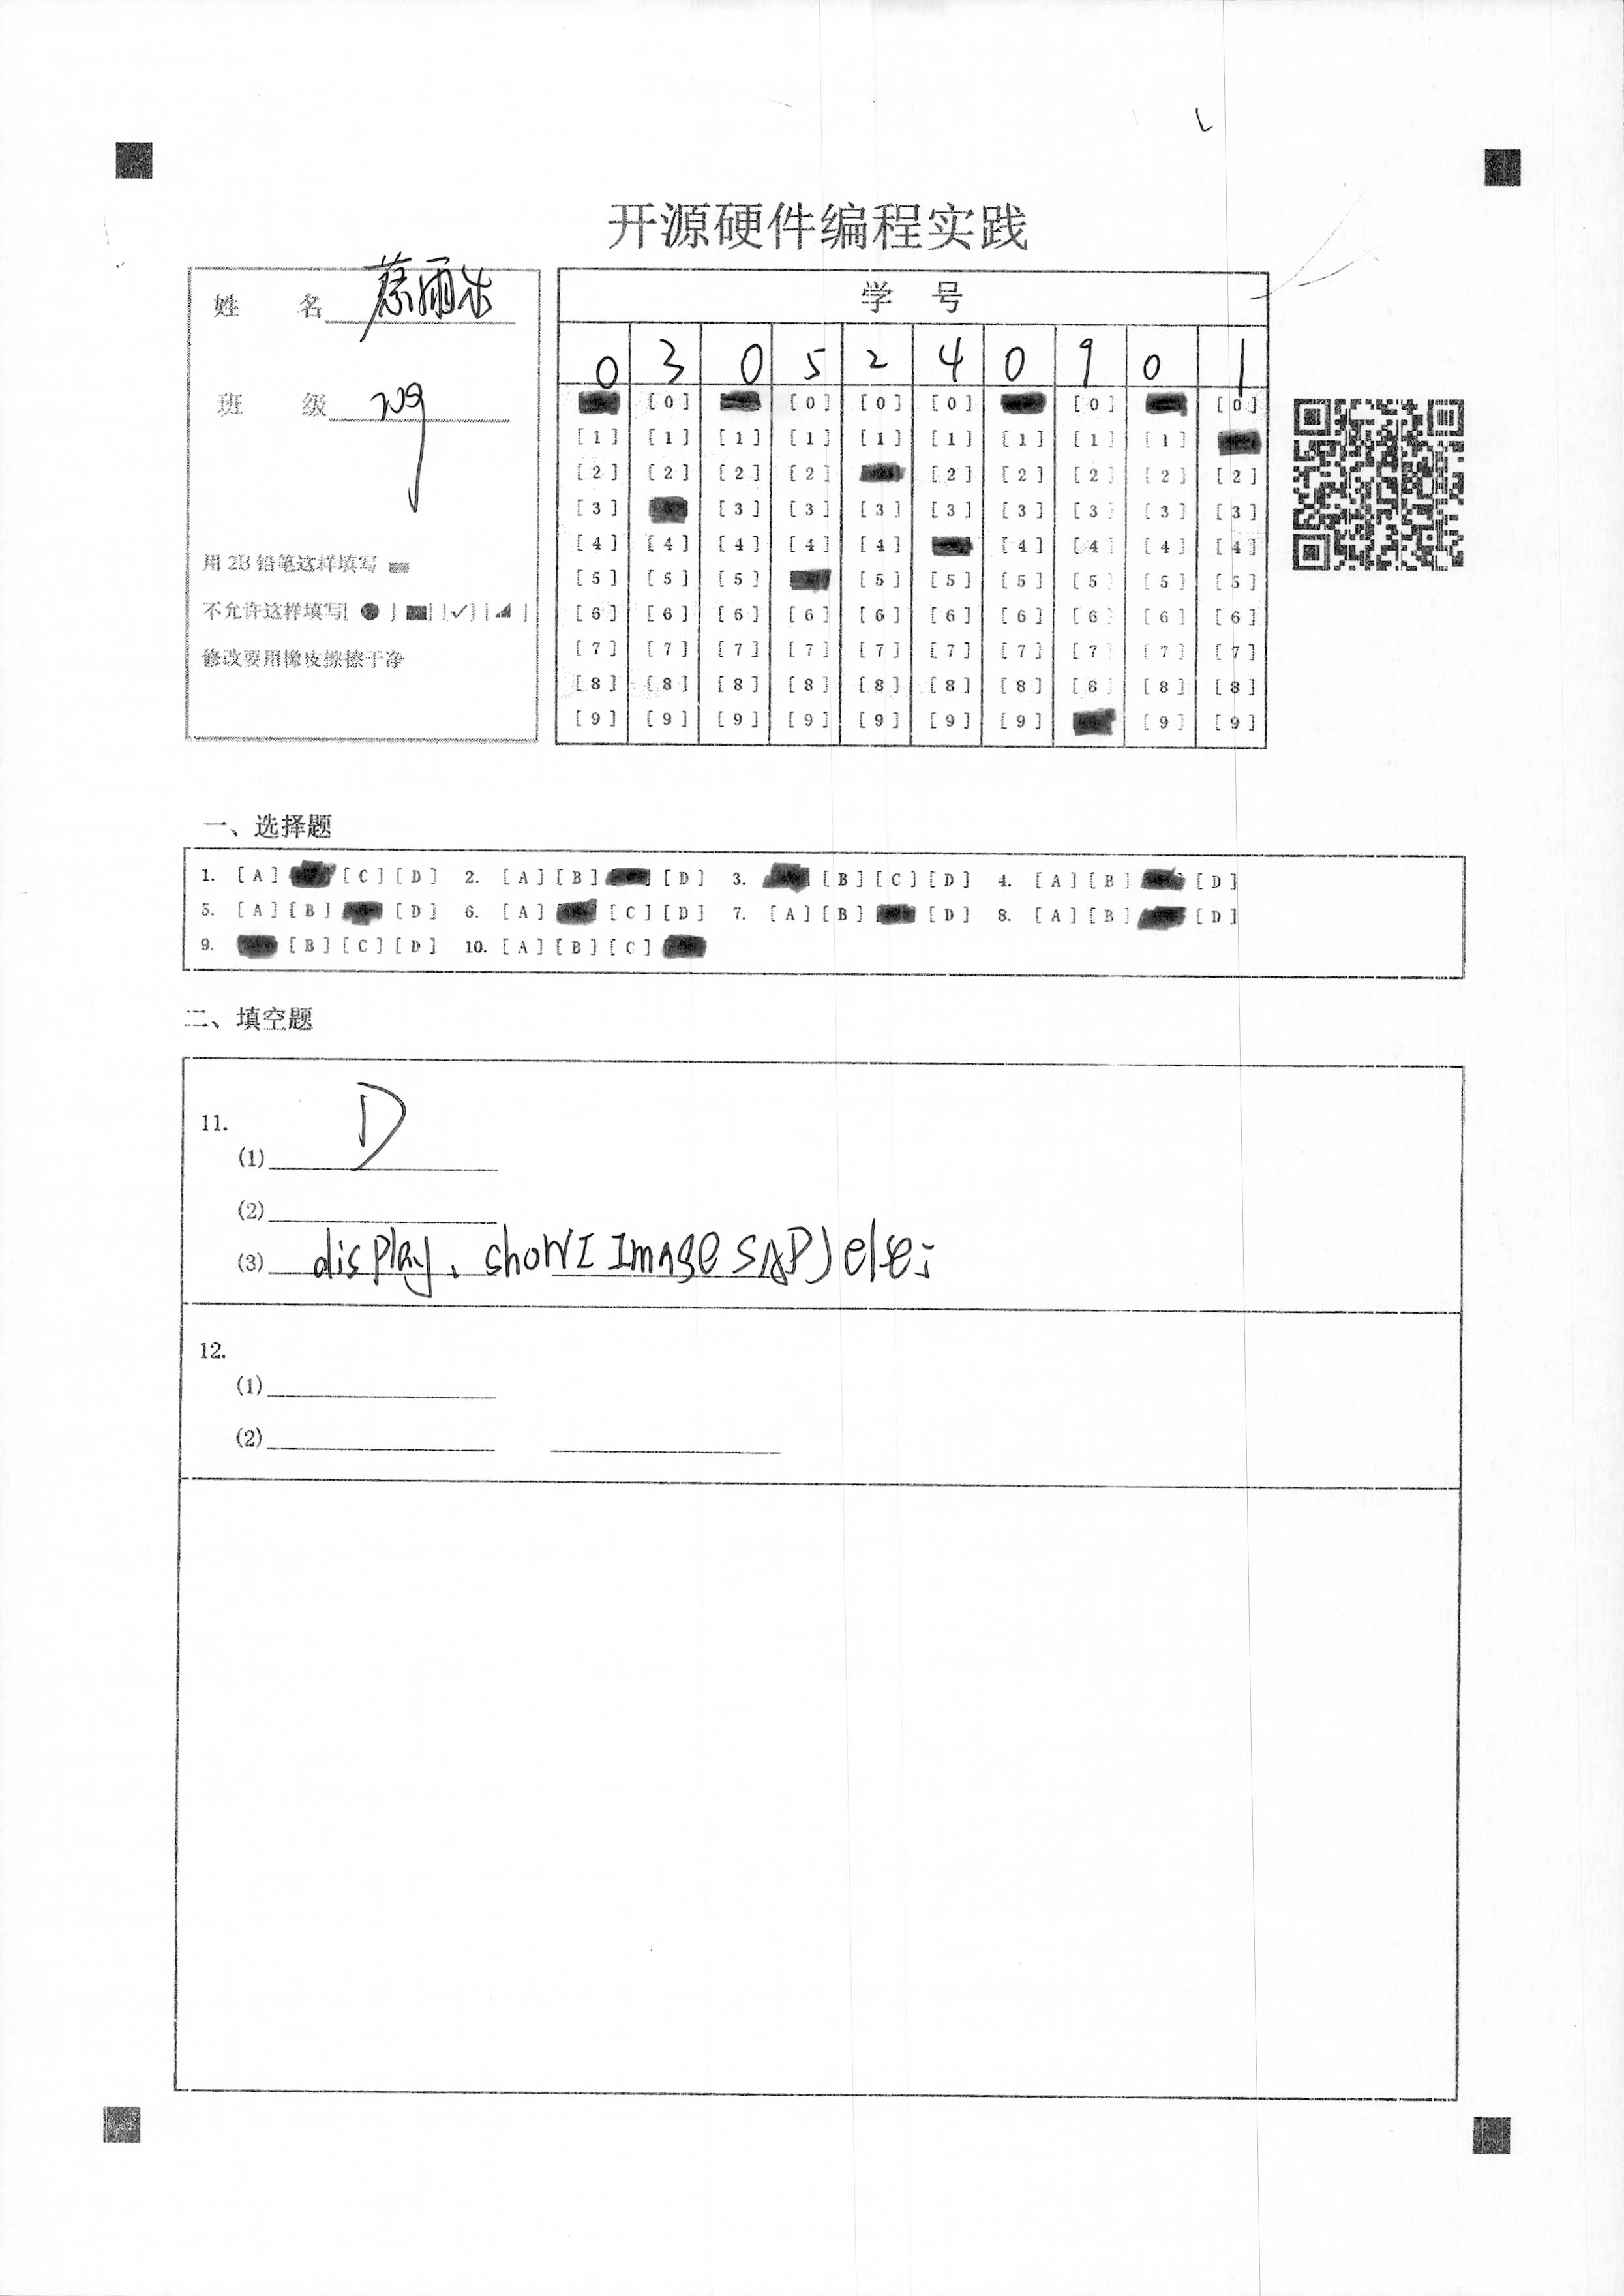 开源硬件编程实践
姓 名
班 级
用 2B 铅笔这样填写
不允许这样填写[ ● ] [■] [✓] [◢ ]
修改要用橡皮擦擦干净
学 号
0 3 0 5 2 4 0 9 0 1
[0] [0] [0] [0] [0] [0]
[1] [1] [1] [1] [1] [1] [1] [1] [1]
[2] [2] [2] [2] [2] [2] [2] [2] [2]
[3] [3] [3] [3] [3] [3] [3] [3] [3]
[4] [4] [4] [4] [4] [4] [4] [4] [4]
[5] [5] [5] [5] [5] [5] [5] [5] [5]
[6] [6] [6] [6] [6] [6] [6] [6] [6] [6]
[7] [7] [7] [7] [7] [7] [7] [7] [7] [7]
[8] [8] [8] [8] [8] [8] [8] [8] [8] [8]
[9] [9] [9] [9] [9] [9] [9] [9] [9]
一、选择题
1. [A] [C] [D] 2. [A] [B] [D] 3. [B] [C] [D] 4. [A] [B] [D]
5. [A] [B] [D] 6. [A] [C] [D] 7. [A] [B] [D] 8. [A] [B] [D]
9. [B] [C] [D] 10. [A] [B] [C]
二、填空题
11.
(1) D
(2)
(3) display. show(Image SAD) else:
12.
(1)
(2)